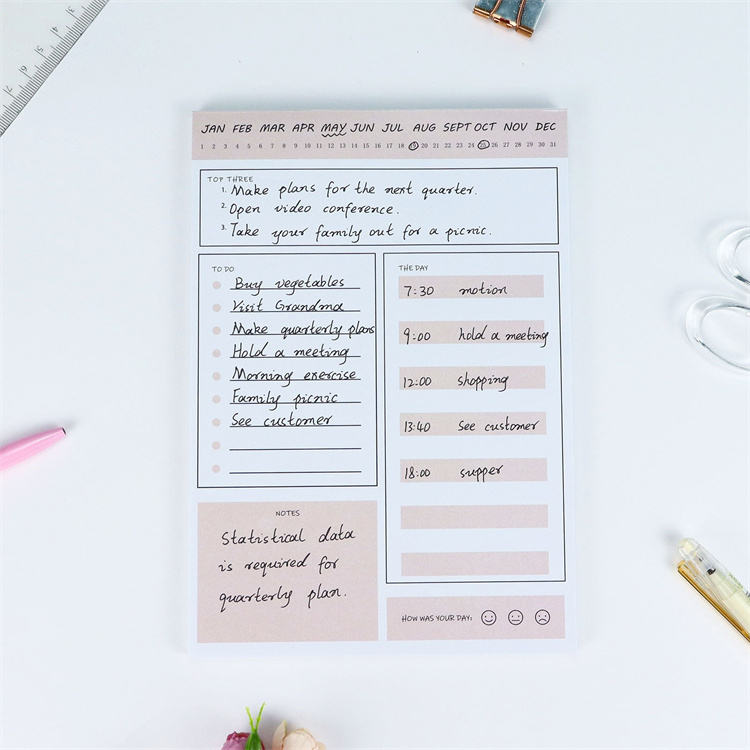 JAN FEB MAR APR MAY JUN JUL AUG SEPT OCT NOV DEC
1 2 3 4 5 6 7 8 9 10 11 12 13 14 15 16 17 18 19 20 21 22 23 24 25 26 27 28 29 30 31
TOP THREE
1. Make plans for the next quarter.
2. Open video conference.
3. Take your family out for a picnic.
TO DO
Buy vegetables
Visit Grandma
Make quarterly plans
Hold a meeting
Morning exercise
Family picnic
See customer
THE DAY
7:30 motion
9:00 hold a meeting
12:00 shopping
13:40 See customer
18:00 supper
NOTES
Statistical data
is required for
quarterly plan.
HOW WAS YOUR DAY: